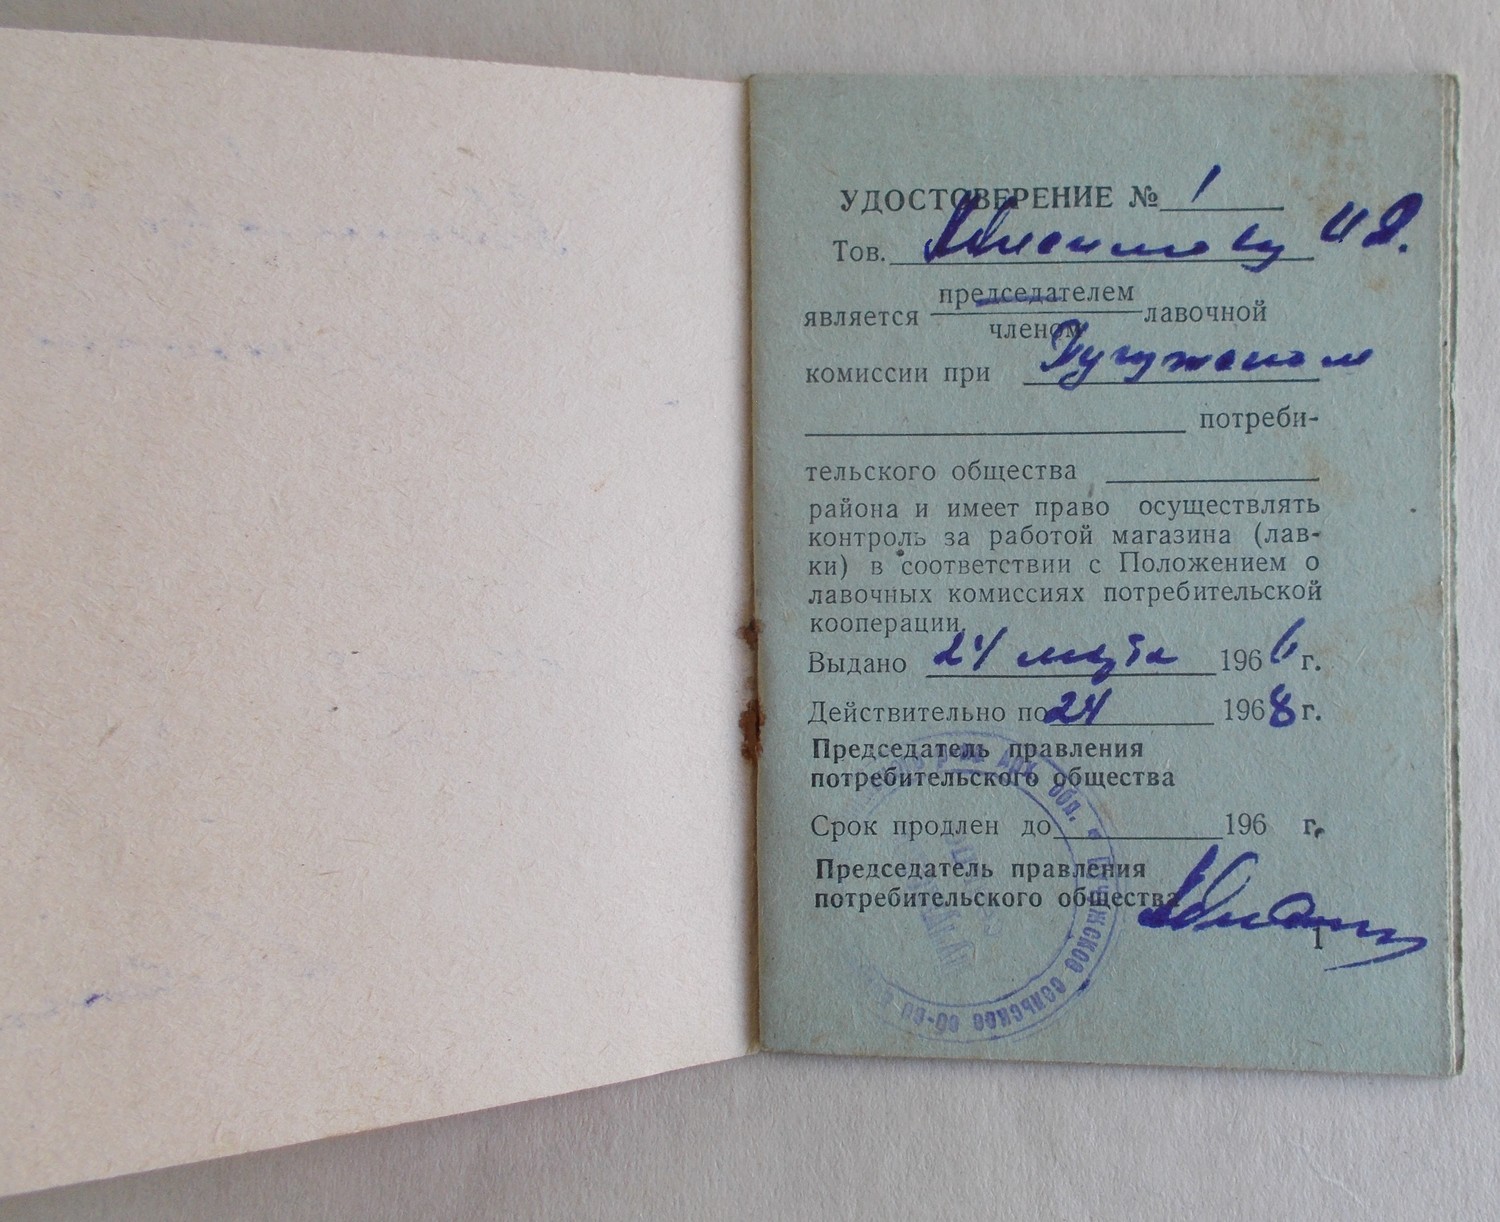 УДОСТОВЕРЕНИЕ № 1
Тов. И Д.
является председателем
членом лавочной
комиссии при
потреби-
тельского общества
района и имеет право осуществлять
контроль за работой магазина (лав-
ки) в соответствии с Положением о
лавочных комиссиях потребительской
кооперации.
Выдано 24 марта 1966 г.
Действительно по 24 1968 г.
Председатель правления
потребительского общества
Срок продлен до 196 г.
Председатель правления
потребительского общества
1
обл.
сельское об-во